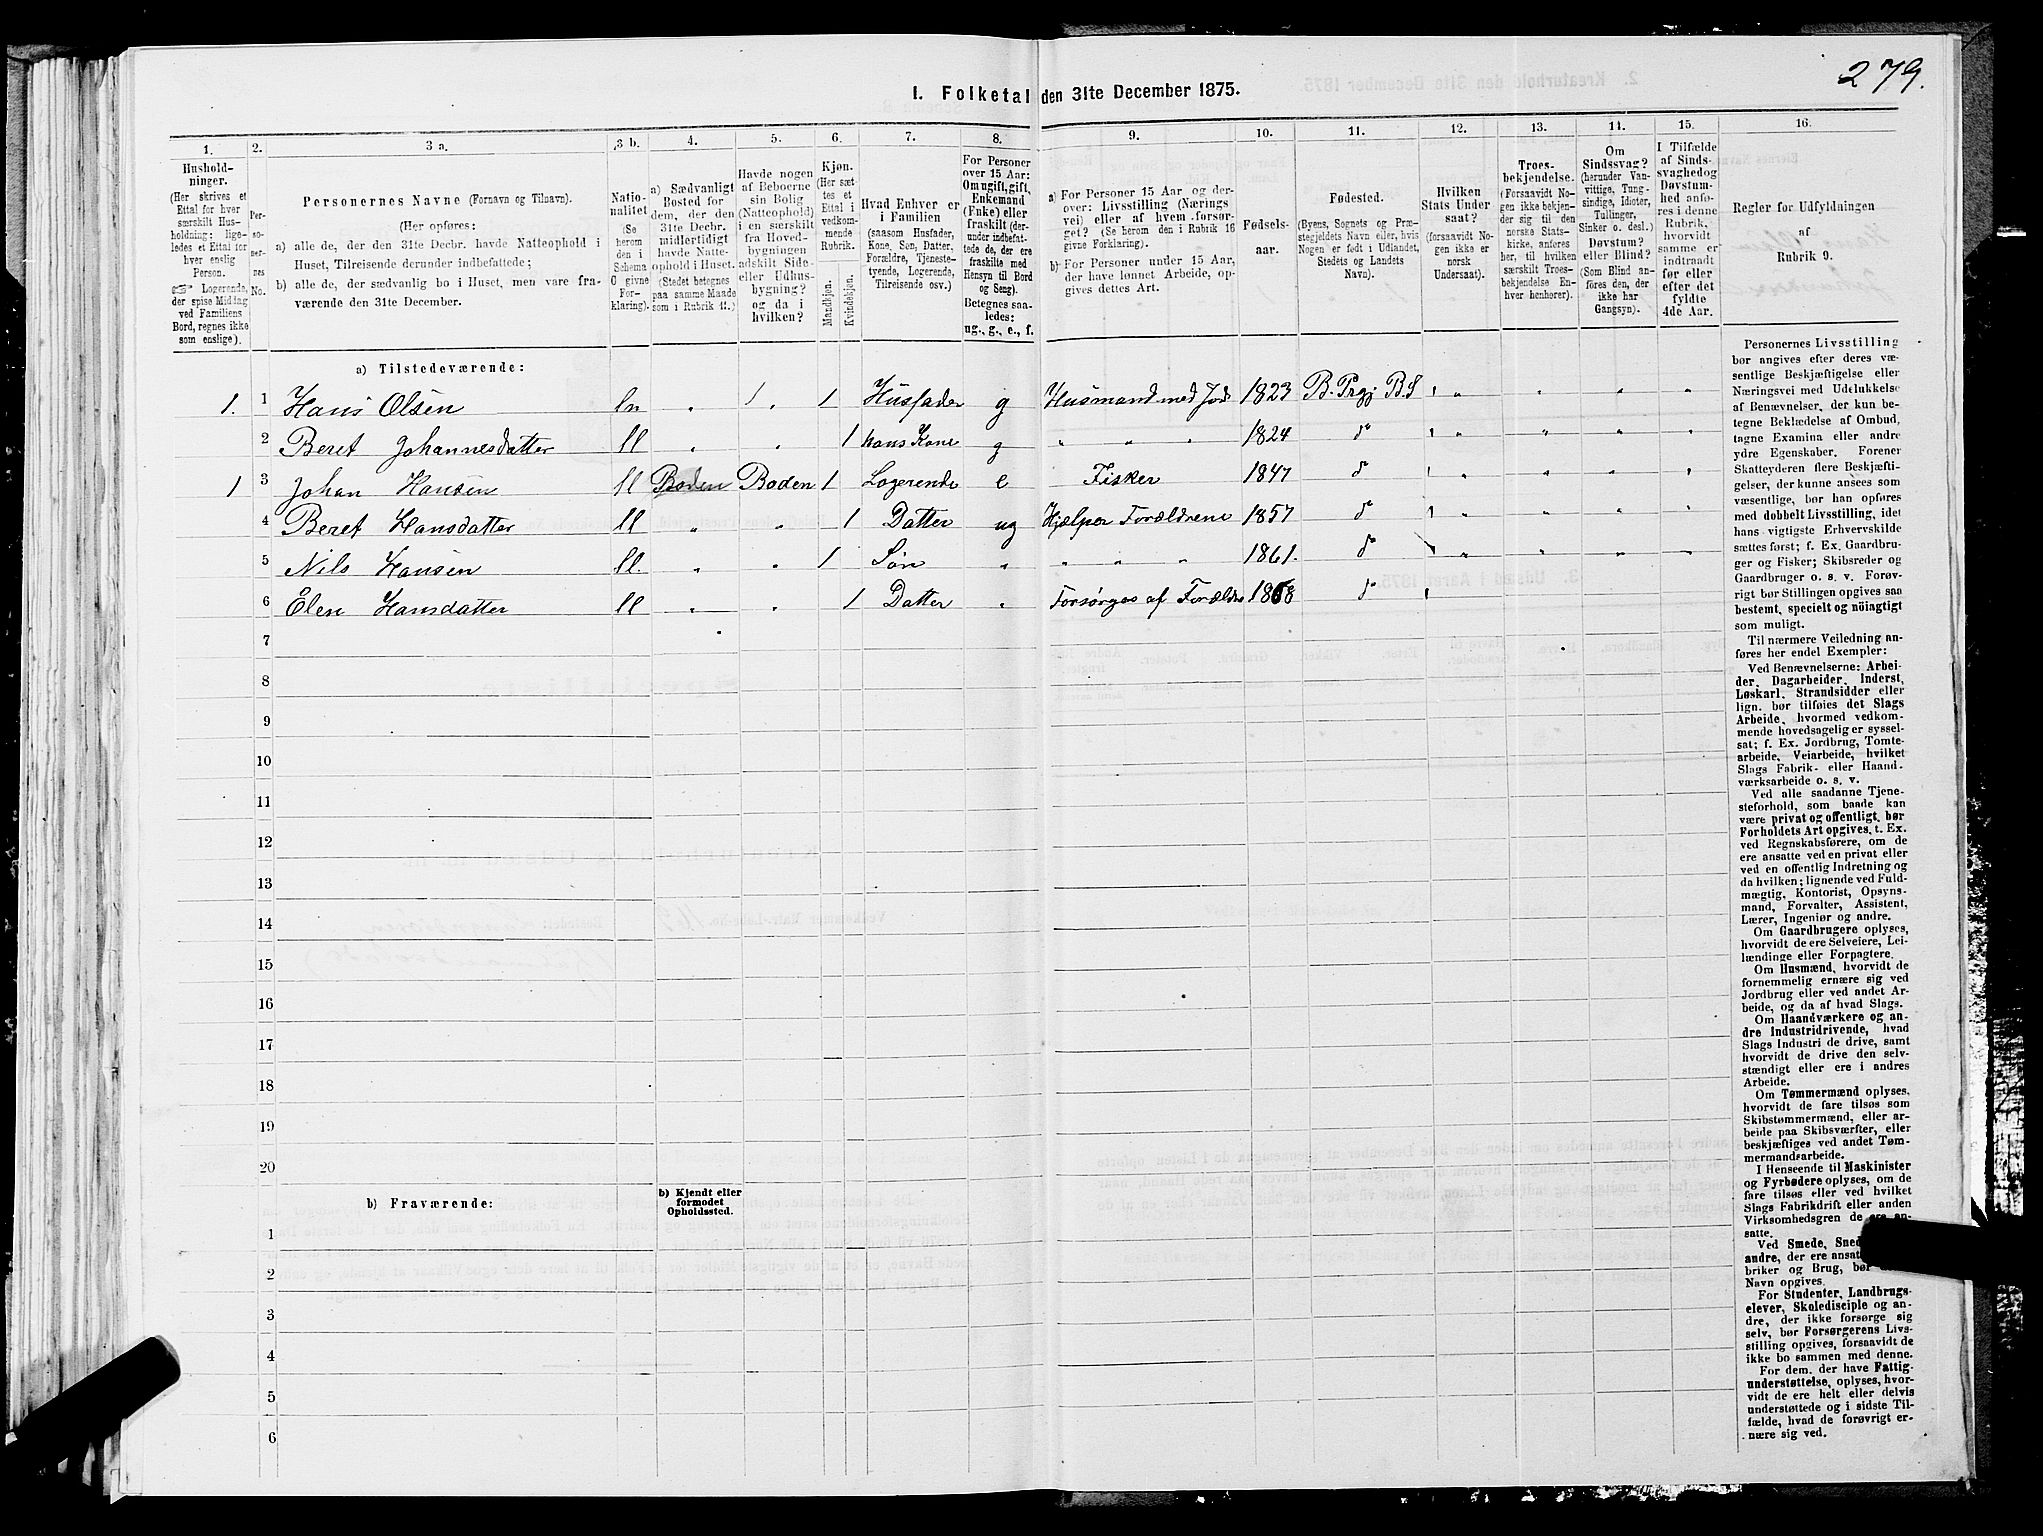 279.
1. Folketal den 31te December 1875.
1. 2. 3 a. 3 b. 4. 5. 6. 7. 8. 9. 10. 11. 12. 13. 14. 15. 16.
Husholdninger.
(Her skrives et Ettal for hver særskilt Husholdning: ligeledes et Ettal for hver enslig Person.
Logerende, der spise Middag ved Familiens Bord, regnes ikke som enslige).
Personernes No.
Personernes Navne (Fornavn og Tilnavn).
(Her opføres:
a) alle de, der den 31te Decbr. havde Natteophold i Huset, Tilreisende derunder indbefattede;
b) alle de, der sædvanlig bo i Huset, men vare fraværende den 31te December.
Nationalitet (Se herom den i Schema O givne Forklaring).
a) Sædvanligt Bosted for dem, der den 31te Decbr. midlertidigt havde Natteophold i Huset. (Stedet betegnes paa samme Maade som i Rubrik 11.)
Havde nogen af Beboerne sin Bolig (Natteophold) i en særskilt fra Hovedbygningen adskilt Side- eller Udhusbygning? og da i hvilken?
Kjøn. (Her sættes et Ettal i vedkommende Rubrik.
Mandkjøn.
Kvindekjøn.
Hvad Enhver er i Familien (saasom Husfader, Kone, Søn, Datter. Forældre, Tjenestetyende, Logerende, Tilreisende osv.)
For Personer over 15 Aar: Om ugift, gift, Enkemand (Enke) eller fraskilt (derunder indbefattede, de, der ere fraskilte med Hensyn til Bord og Seng). Betegnes saaledes: ug., g., e., f.
a) For Personer 15 Aar og derover: Livsstilling (Næringsvei) eller af hvem forsørget? (Se herom den i Rubrik 16 givne Forklaring).
b) For Personer under 15 Aar, der have lønnet Arbeide, opgives dettes Art.
Fødselsaar.
Fødested.
(Byens, Sognets og Præstegjeldets Navn eller, hvis Nogen er født i Udlandet, Stedets og Landets Navn).
Hvilken Stats Undersaat? (forsaavidt Nogen ikke er norsk Undersaat).
Troesbekjendelse. (Forsaavidt Nogen ikke bekjender sig til den norske Statskirke, anføres her, til hvilken særskilt Troesbekjendelse Enhver henhører).
Om Sindssvag? (herunder Vanvittige, Tungsindige, Idioter, Tullinger, Sinker o. desl.) Døvstum? eller Blind? (Som Blind anføres den, der ikke har Gangsyn).
I Tilfælde af Sindssvaghed og Døvstumhed anføres i denne Rubrik, hvorvidt samme er indtraadt før eller efter det fyldte 4de Aar.
Regler for Udfyldningen af Rubrik 9.
a) Tilstedeværende:
1. 1 Hans Olsen ln „ „ 1 Husfader g Husmand med Jord 1823 B. Prgj B.S „ „ „ „
2 Beret Johannesdatter ll „ „ 1 hans Kone g „ „ „ 1824 do „ „ „ „
1 3 Johan Hansen ll Boden Boden 1 Logerende e Fisker 1847 do „ „ „ „
4 Beret Hansdatter ll „ „ 1 Datter ug Hjælper Forældrene 1857 do „ „ „ „
5 Nils Hansen ll. „ „ 1 Søn „ „ „ „ 1861. do „ „ „ „
6 Elen Hansdatter ll „ „ 1 Datter „ Forsørges af Forældre 1868 do
7
8
9
10
11
12
13
14
15
16
17
18
19
20
b) Fraværende:
b) Kjendt eller formodet Opholdssted.
1
2
3
4
5
6
Personernes Livsstilling
bør angives efter deres væ-
sentlige Beskjæftigelse eller
Næringsvei med Udelukkelse
af Benævnelser, der kun be-
tegne Beklædelse af Ombud,
tagne Examina eller andre
ydre Egenskaber. Forener
Skatteyderen flere Beskjæfti-
gelser, der kunne ansees som
væsentlige, bør han opføres
med dobbelt Livsstilling, idet
hans vigtigste Erhvervskilde
sættes først; f. Ex. Gaardbru-
ger og Fisker; Skibsreder og
Gaardbruger o. s. v. Forøv-
rigt bør Stillingen opgives saa
bestemt, specielt og nöiagtigt
som muligt.
Til nærmere Veiledning an-
føres her endel Exempler:
Ved Benævnelserne: Arbei-
der, Dagarbeider, Inderst,
Løskarl, Strandsidder eller
lign. bør tilføies det Slags
Arbeide, hvormed vedkom-
mende hovedsagelig er syssel-
sat; f. Ex. Jordbrug, Tomte-
arbeide, Veiarbeide, hvilket
Slags Fabrik- eller Haand-
værksarbeide o. s. v.
Ved alle saadanne Tjene-
steforhold, som baade kan
være privat og offentligt, bør
Forholdets Art opgives, t. Ex.
ved Regnskabsførere, om de
ere ansatte ved en privat eller
ved en offentlig Indretning og
da hvilken; lignende ved Fuld-
mægtig, Kontorist, Opsyns-
mand, Forvalter, Assistent,
Lærer, Ingeniør og andre.
Om Gaardbrugere oplyses,
hvorvidt de ere Selveiere, Lei-
lændinge eller Forpagtere.
Om Husmænd, hvorvidt de
fornemmelig ernære sig ved
Jordbrug eller ved andet Ar-
beide, og da af hvad Slags.
Om Haandværkere og an-
dre Industridrivende, hvad
Slags Industri de drive, samt
hvorvidt de drive den selv-
stændigt eller ere i andres
Arbeide.
Om Tømmermænd oplyses,
hvorvidt de fare tilsøs som
Skibstømmermænd, eller ar-
beide paa Skibsværfter, eller
beskjæftiges ved andet Tøm-
mermandsarbeide.
I Henseende til Maskinister
og Fyrbødere oplyses, om de
fare tilsøs eller ved hvilket
Slags Fabrikdrift eller anden
Virksomhedsgren de ere an-
satte.
Ved Smede,
andre, der ere ansat
briker og Brug, bør
Navn opgives.
For Studenter, Landbrugs-
elever, Skoledisciple og an-
dre, der ikke forsørge sig
selv, bør Forsørgerens Livs-
stilling opgives, forsaavidt de
ikke bo sammen med denne.
For dem, der have Fattig-
understøttelse, oplyses, hvor-
vidt de ere helt eller delvis
understøttede og i sidste Til-
fælde, hvad de forøvrigt er-
nære sig ved.